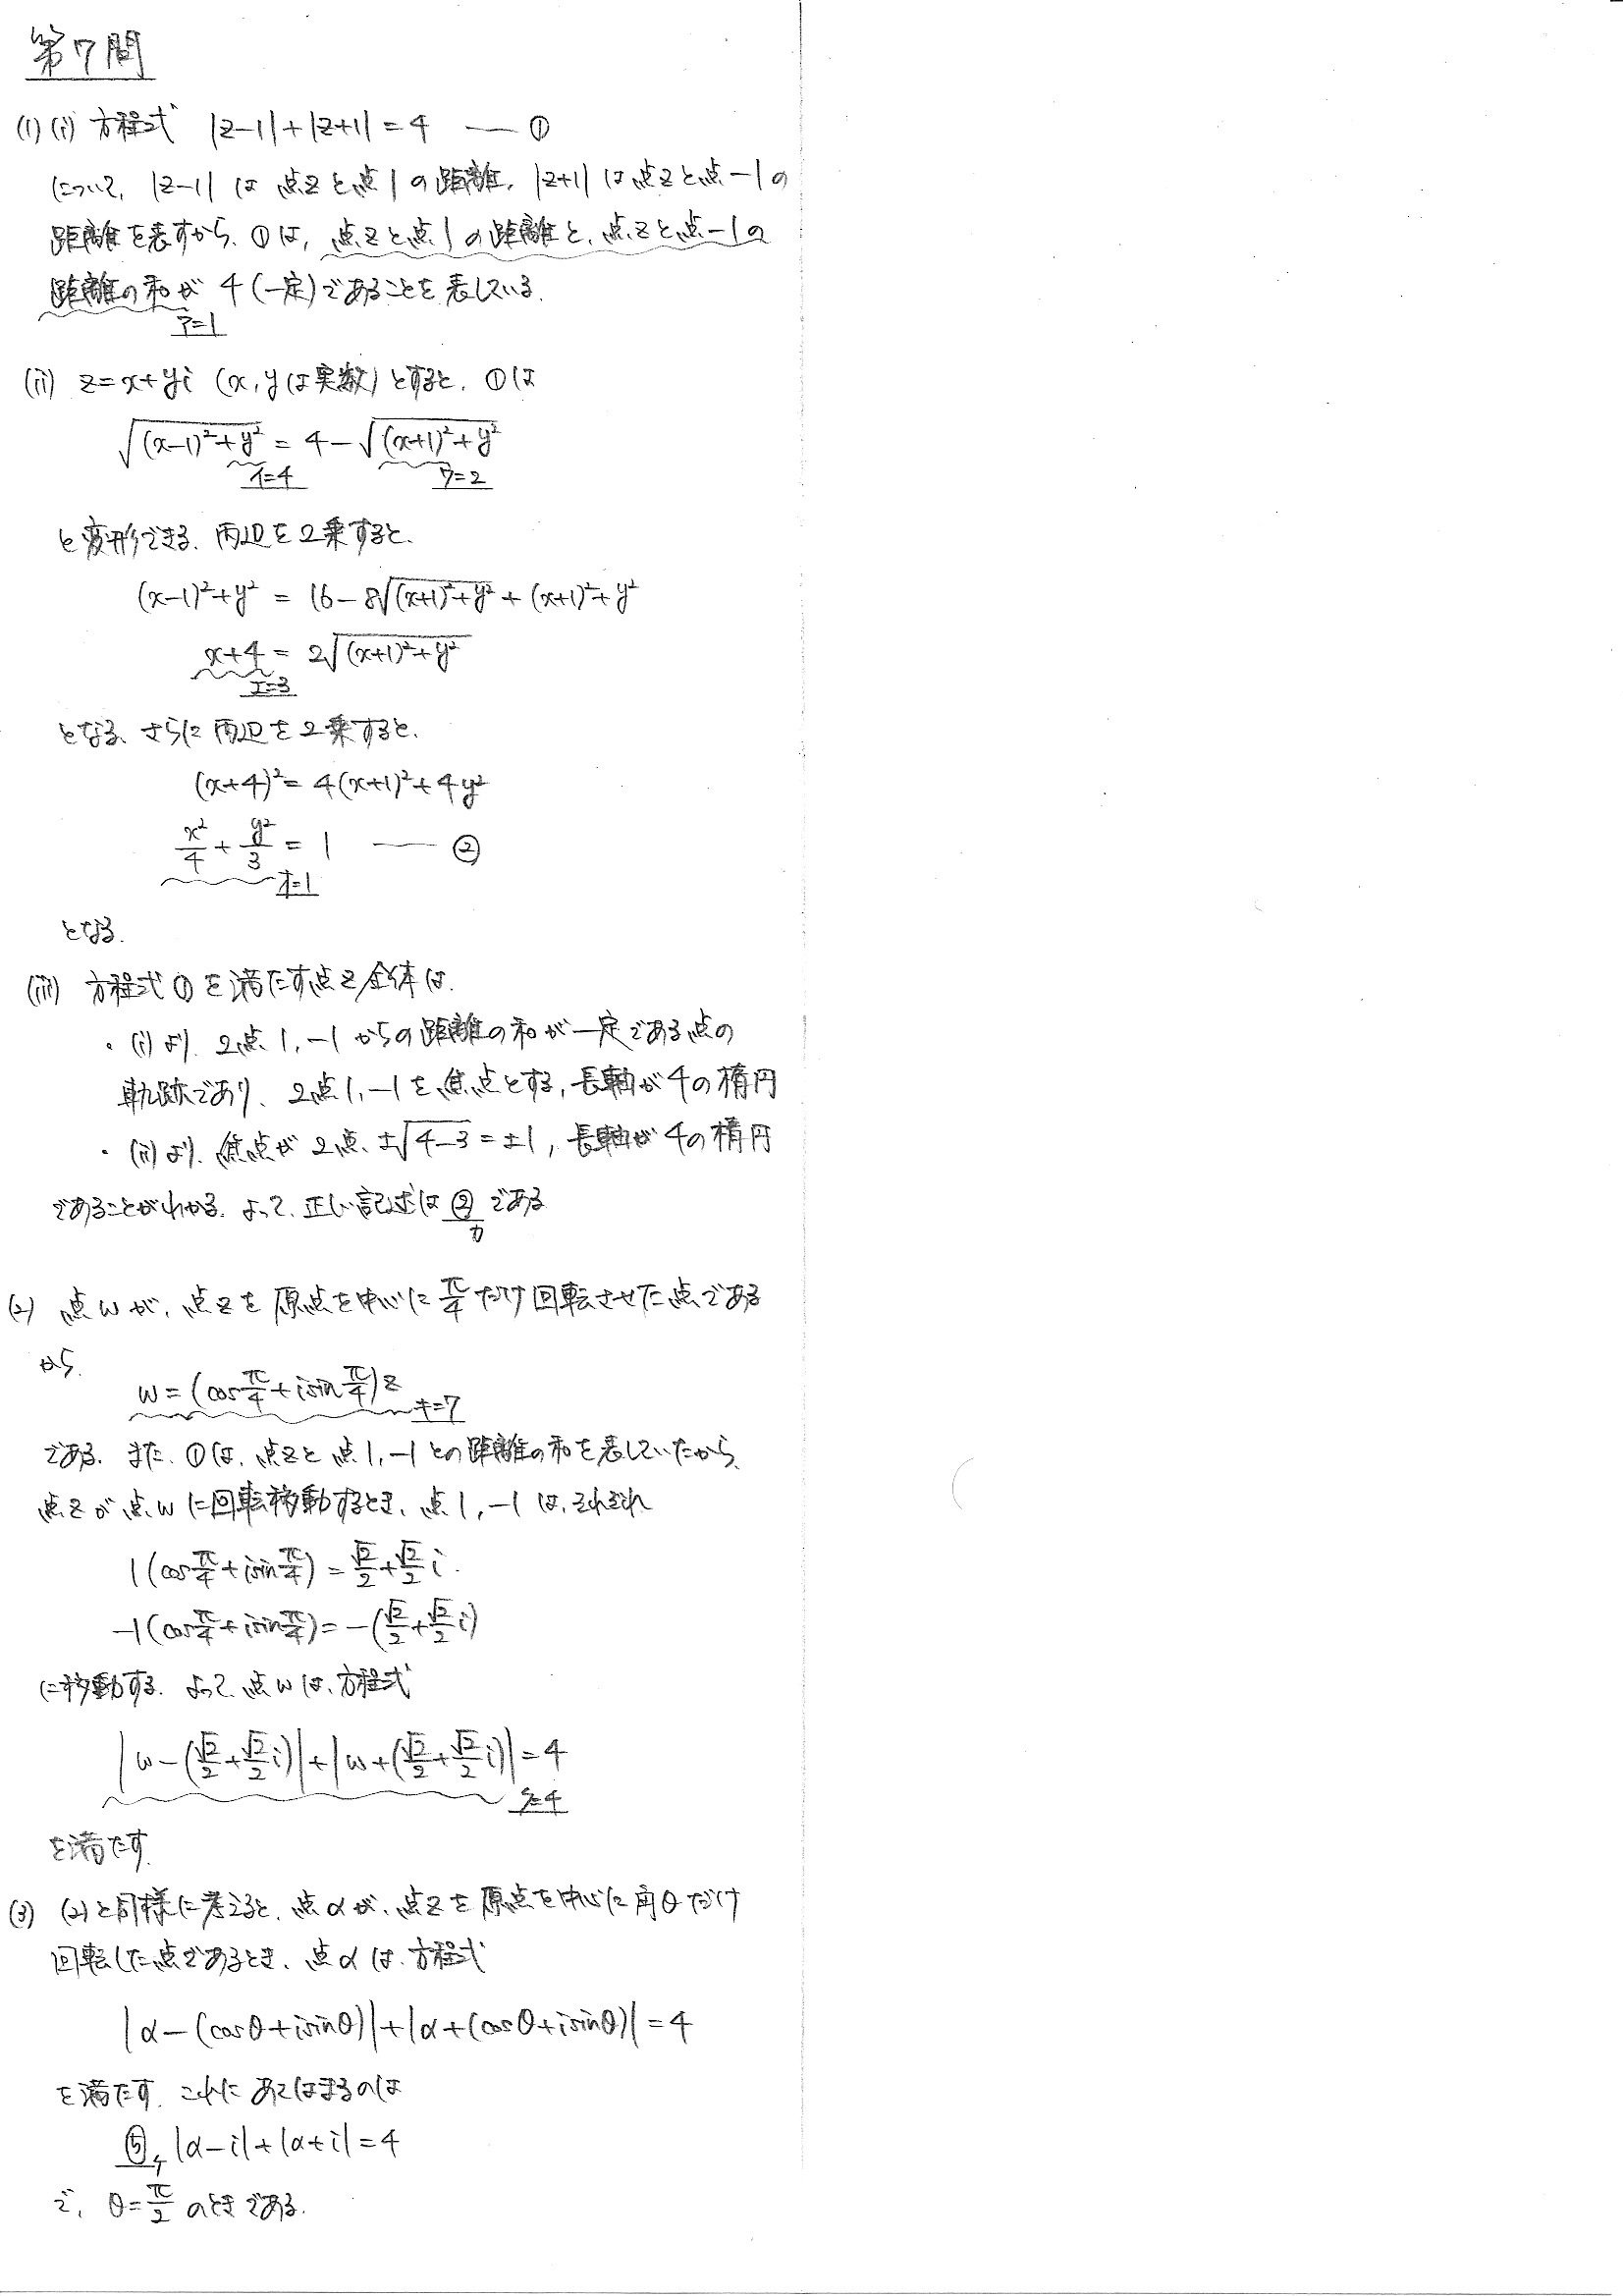 第7問
(1)(i) 方程式 |z-1|+|z+1|=4 ― ①
について、|z-1| は 点zと点1の距離、|z+1| は点zと点-1の
距離を表すから、①は、点zと点1の距離と、点zと点-1の
距離の和が 4(一定)であることを表している。
ア=1
(ii) z=x+yi (x,yは実数)とすると、①は
√((x-1)²+y²) = 4-√((x+1)²+y²)
イ=4 ウ=2
と変形できる。両辺を2乗すると、
(x-1)²+y² = 16-8√((x+1)²+y²)+(x+1)²+y²
x+4 = 2√((x+1)²+y²)
エ=3
となる。さらに両辺を2乗すると、
(x+4)² = 4(x+1)²+4y²
x²/4 + y²/3 = 1 ― ②
オ=1
となる。
(iii) 方程式①を満たす点z全体は、
・(i)より、2点1,-1からの距離の和が一定である点の
軌跡であり、2点1,-1を焦点とする、長軸が4の楕円
・(ii)より、焦点が2点、±√(4-3)=±1, 長軸が4の楕円
であることがわかる。よって、正しい記述は②である
カ
(2) 点wが、点zを原点を中心にπ/4だけ回転させた点である
から、
w=(cosπ/4+isinπ/4)z
キ=7
である。また、①は、点zと点1,-1との距離の和を表していたから、
点zが点wに回転移動するとき、点1,-1は、それぞれ
1(cosπ/4+isinπ/4)=√2/2+√2/2i.
-1(cosπ/4+isinπ/4)=-(√2/2+√2/2i)
に移動する。よって、点wは、方程式
|w-(√2/2+√2/2i)|+|w+(√2/2+√2/2i)|=4
ク=4
を満たす。
(3) (2)と同様に考えると、点αが、点zを原点を中心に角θだけ
回転した点であるとき、点αは、方程式
|α-(cosθ+isinθ)|+|α+(cosθ+isinθ)|=4
を満たす。これにあてはまるのは
⑤ケ, |α-i|+|α+i|=4
で、θ=π/2 のときである。